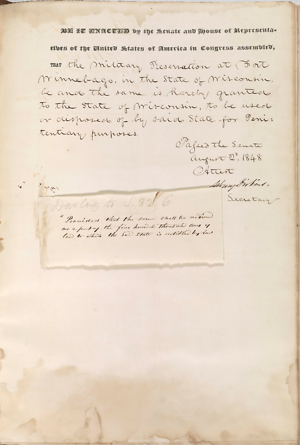 BE IT ENACTED by the Senate and House of Representa-
tives of the United States of America in Congress assembled,
THAT the Military Reservation at Fort
Winnebago, in the State of Wisconsin,
be and the same is hereby granted
to the State of Wisconsin, to be used
or disposed of by said State for Peni-
tentiary purposes.
Passed the Senate
August 12, 1848
Attest
Secretary
"Provided that the same shall be
as a part of the five hundred thousand acres of
land to which the said State is entitled by law